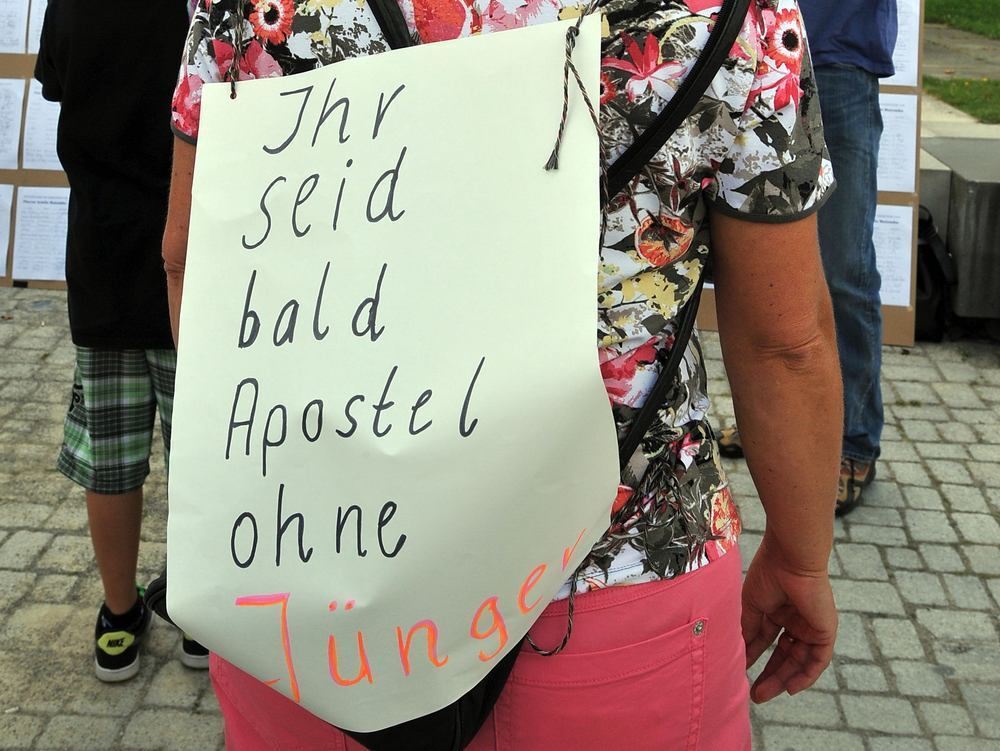 Ihr
seid
bald
Apostel
ohne
Jünger
NIKE